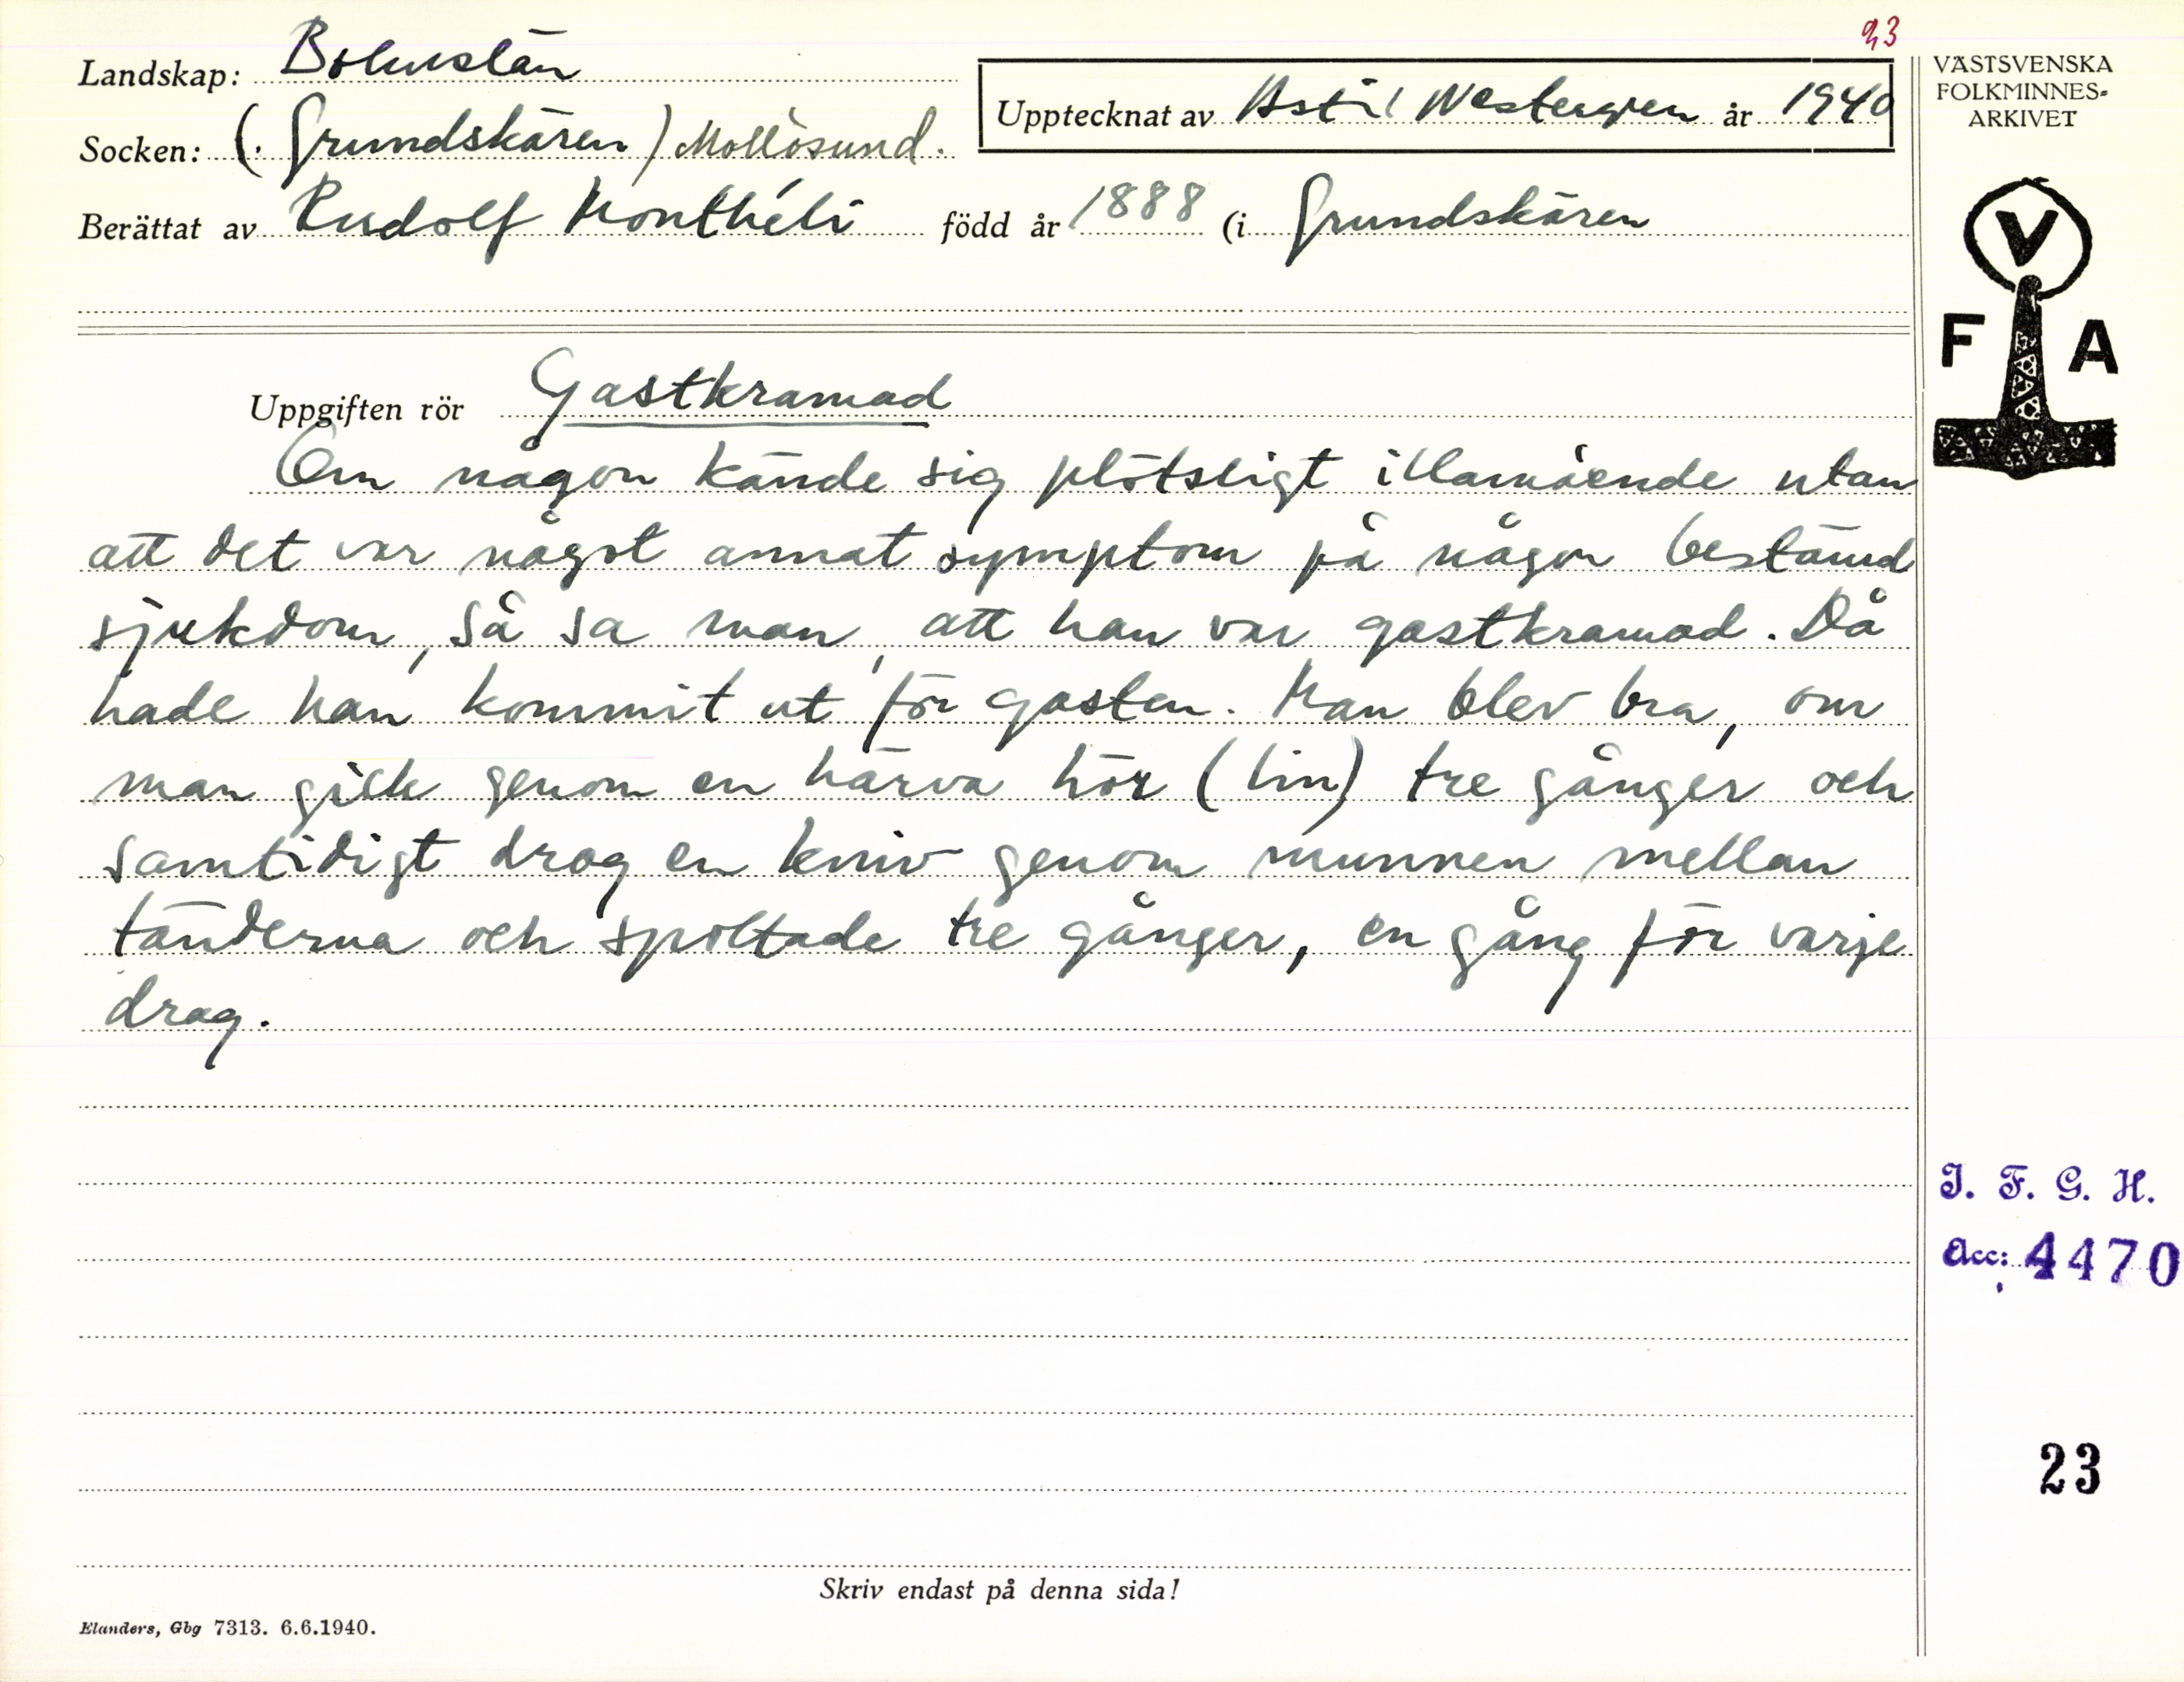 23
Landskap: Bohuslän
Socken: (Grundskären) Mollösund.
Upptecknat av Astrid Westergren år 1940
Berättat av Rudolf Monthéli född år 1888 (i Grundskären
VÄSTSVENSKA
FOLKMINNES-
ARKIVET
V
F A
Uppgiften rör Gastkramad
Om någon kände sig plötsligt illamående utan
att det var något annat symptom på någon bestämd
sjukdom, så sa man, att han var gastkramad. Då
hade han kommit ut för gasten. Man blev bra, om
man gick genom en härva hör (lin) tre gånger och
samtidigt drog en kniv genom munnen mellan
tänderna och spottade tre gånger, en gång för varje
drag.
I. F. G. H.
Acc: 4470
23
Skriv endast på denna sida!
Elanders, Gbg 7313. 6.6.1940.